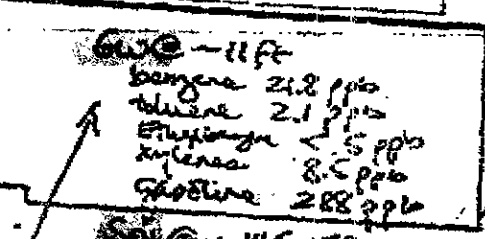 GW@ ~11ft
benzene 21.8 ppb
toluene 2.1 ppb
Ethylbenzene < .5 ppb
xylenes 8.5 ppb
Gasoline 288 ppb